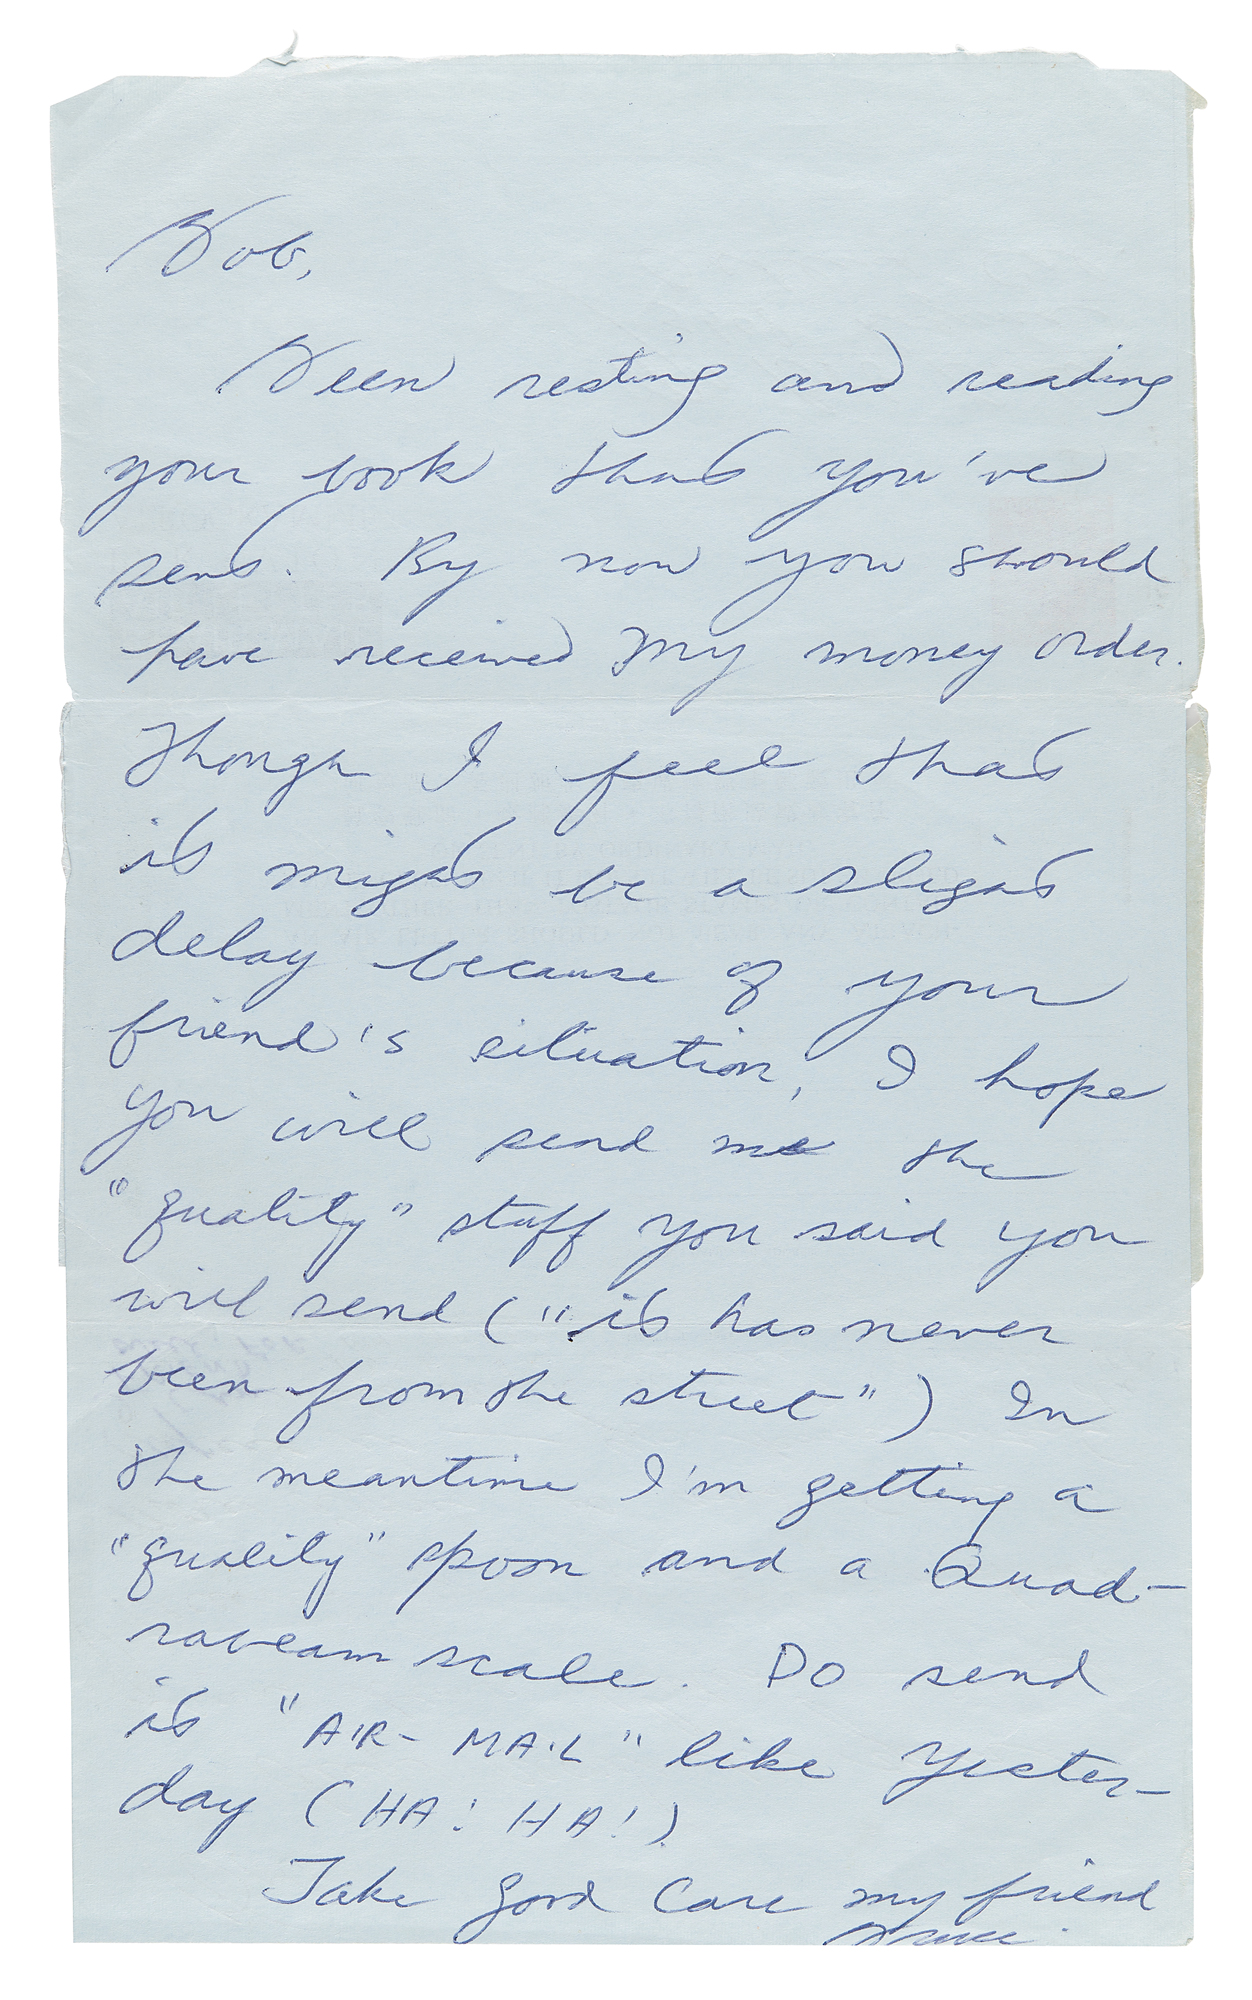 Bob,
Been resting and reading
your book that you've
sent. By now you should
have received my money order.
Though I feel that
it might be a slight
delay because of your
friend's situation, I hope
you will send me the
"quality" stuff you said you
will send ("it has never
been from the street") In
the meantime I'm getting a
"quality" spoon and a Quad-
rabeam scale. Do send
it "AIR-MAIL" like yester-
day (HA! HA!)
Take good care my friend
Bruce